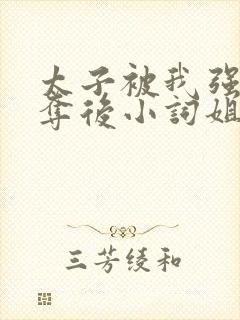 太子被我强
夺後小詞姐
三芳绫和